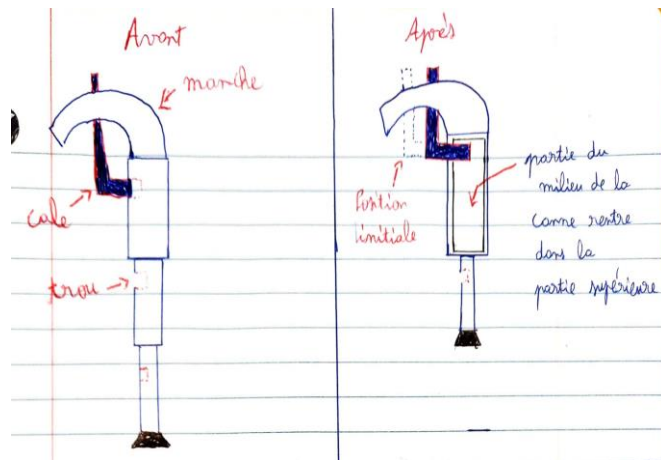 Avant
manche
cale
trou
Après
Position
initiale
partie du
milieu de la
canne rentre
dans la
partie supérieure